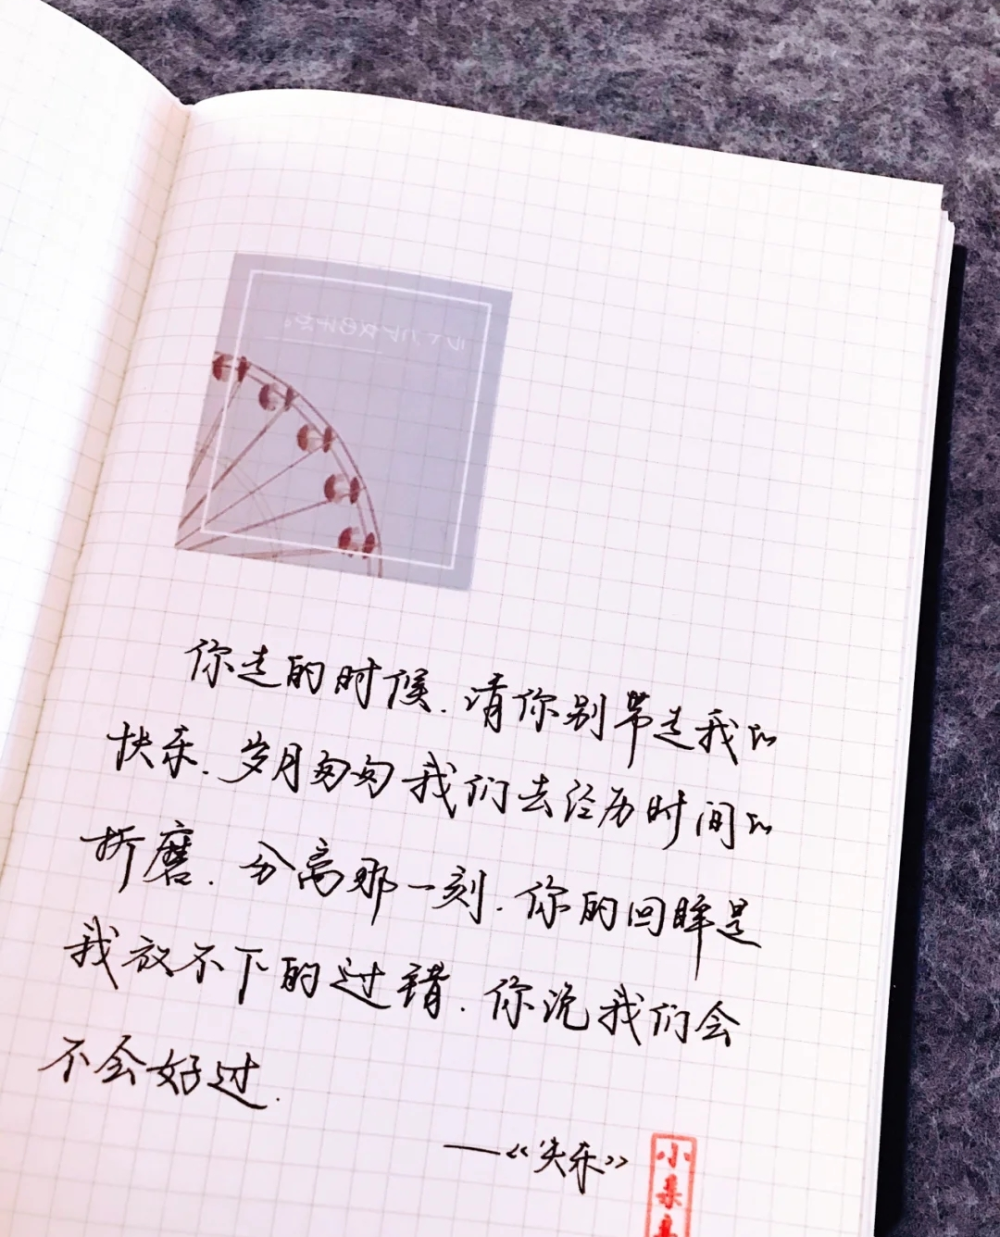 你走的时候.请你别带走我的
快乐.岁月匆匆我们去经历时间的
折磨.分离那一刻.你的回眸是
我放不下的过错.你说我们会
不会好过.
——《失乐》
小